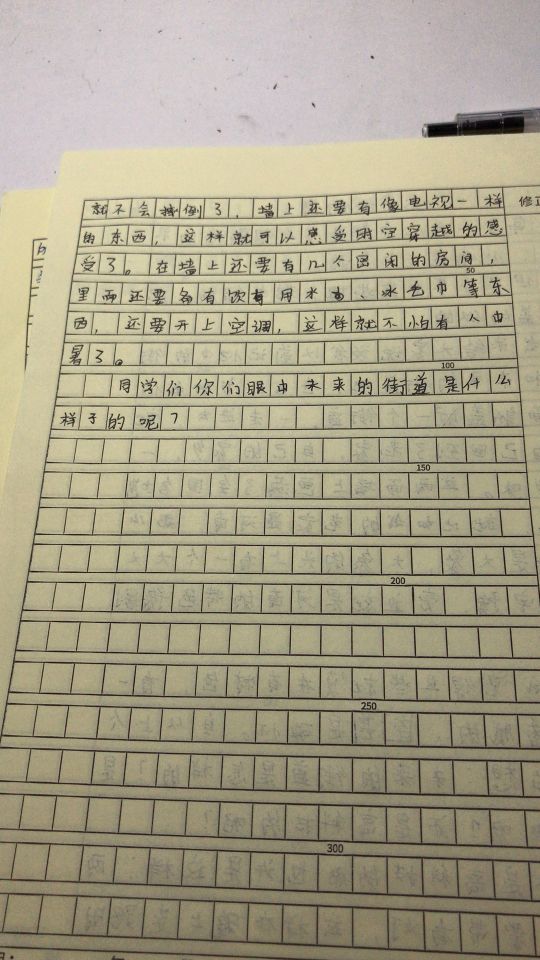 就不会摔倒了，墙上还要有像电视一样
的东西，这样就可以感受时空穿越的感
受了。在墙上还要有几个密闭的房间，
里面还要备有饮用水、冰毛巾等东
西，还要开上空调，这样就不怕有人中
暑了。
同学们你们眼中未来的街道是什么
样子的呢？
修正
50
100
150
200
250
300